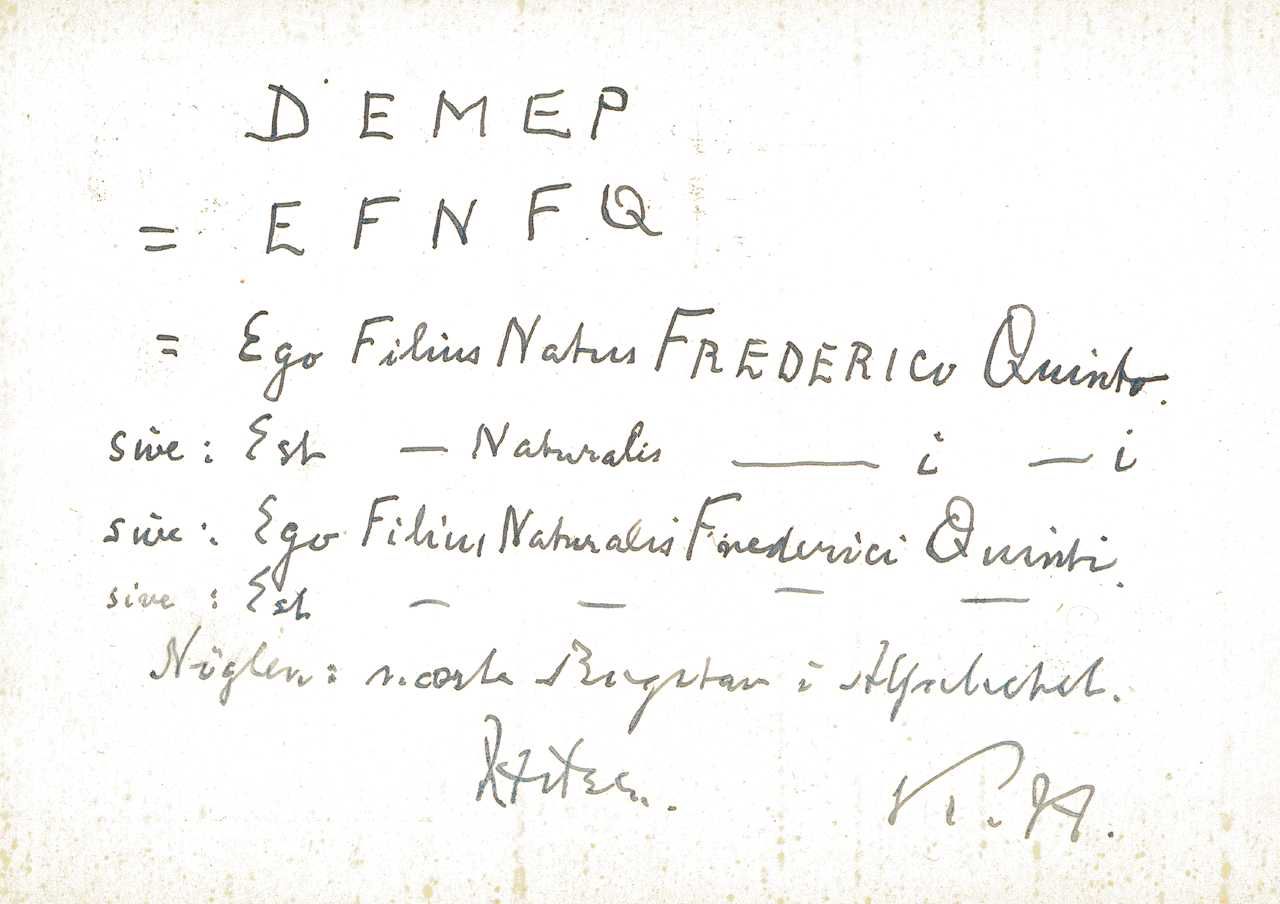 D E M E P
= E F N F Q
= Ego Filius Natus FREDERICO Quinto.
sive : Est — Naturalis — i — i
sive : Ego Filius Naturalis Frederici Quinti.
sive : Est — — — —
Nöglen : næste Bogstav i Alfabetet.